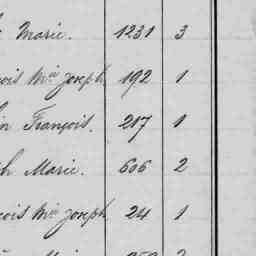 Marie. 1231 3
ois Mie Joseph 192 1
in François. 217 1
h Marie. 606 2
çois Mie Joseph 24 1